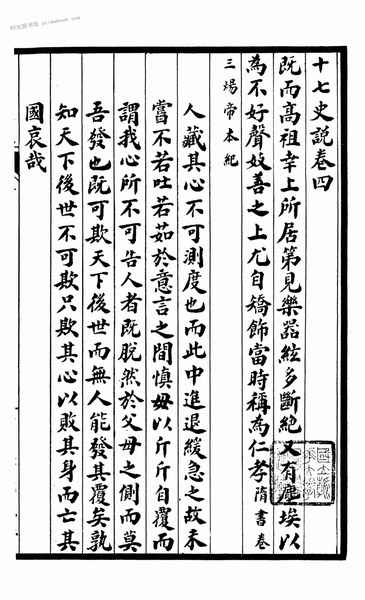 十七史説卷四
既而高祖幸上所居第見樂器絃多斷絶又有塵埃以
為不好聲妓善之上尤自矯飾當時稱為仁孝隋書卷
三煬帝本紀
人藏其心不可測度也而此中進退緩急之故未
嘗不若吐若茹於意言之間慎毋以斤斤自覆而
謂我心所不可告人者既脫然於父母之側而莫
吾發也既可欺天下後世而無人能發其覆矣孰
知天下後世不可欺只欺其心以敗其身而亡其
國哀哉